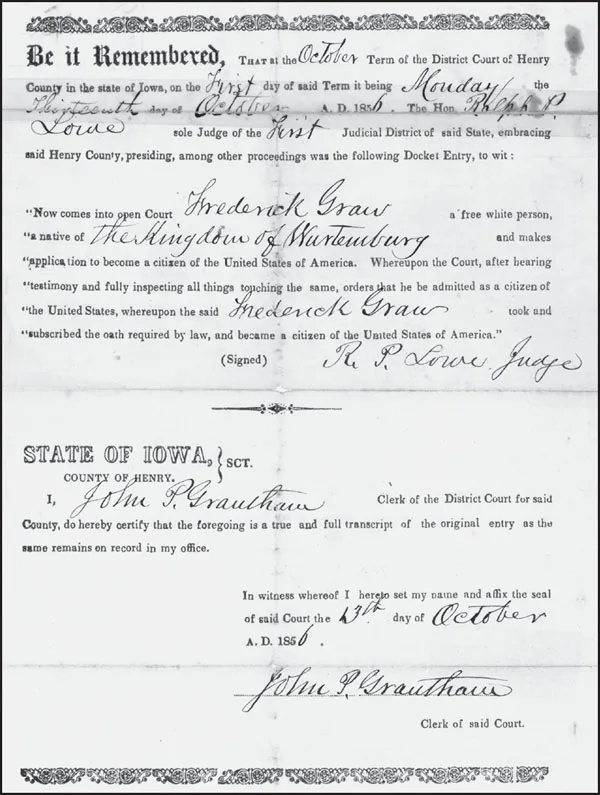 Be it Remembered, THAT at the October Term of the District Court of Henry
County in the state of Iowa, on the First day of said Term it being Monday the
Thirteenth day of October A. D. 1856. The Hon. Ralph P.
Lowe sole Judge of the First Judicial District of said State, embracing
said Henry County, presiding, among other proceedings was the following Docket Entry, to wit:
"Now comes into open Court Frederick Graw a free white person,
"a native of the Kingdom of Wurtemburg and makes
"application to become a citizen of the United States of America. Whereupon the Court, after hearing
"testimony and fully inspecting all things touching the same, orders that he be admitted as a citizen of
"the United States, whereupon the said Frederick Graw took and
"subscribed the oath required by law, and became a citizen of the United States of America."
(Signed) R. P. Lowe Judge
STATE OF IOWA, } SCT.
COUNTY OF HENRY.
I, John P. Grantham Clerk of the District Court for said
County, do hereby certify that the foregoing is a true and full transcript of the original entry as the
same remains on record in my office.
In witness whereof I hereto set my name and affix the seal
of said Court the 13th day of October
A. D. 1856.
John P. Grantham
Clerk of said Court.